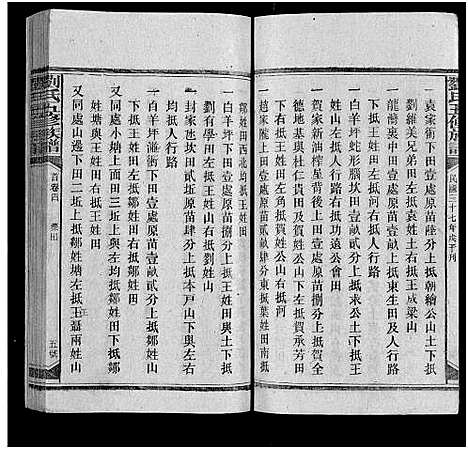 劉氏五修族譜
民國三十七年戊子刊
一袁家衝下田壹處原苗壹畝貳分上抵朝繪公山土下抵
劉維美兄弟田左抵袁姓土右抵王成粱山
一龍灣裏中田壹處原苗壹畝上抵大更生田及人行路
下抵王姓田左抵河右抵人行路
一白羊坪蛇形腦坎田壹畝貳分上抵來公山下抵鄒
姓山左抵人行路右抵功遠公會田
一賀家新油榨屋背田壹處原苗捌分上抵賀金
德地基與杜仁貴田及儀順田下抵賀承芳田
左抵大路直下田角抵賀姓公山右抵河
一趙家隴上田貳坵原苗壹畝肆分東抵葉姓田南抵
鄒姓田西北均抵王姓田
一白羊坪田壹處原苗壹畝貳分上抵王姓田與土下抵
劉有學田左抵王姓山右抵劉姓山
一封家屹坎田貳坵原苗肆分上抵本戶山下與左右
均抵人行路
一白羊坪滙衝下田壹處原苗捌分上抵王姓山及人行路
下抵王姓田左抵鄒姓田右抵王姓田
又同處小塘上面田三坵上與左均抵鄒姓田下抵鄒
姓塘與王姓田右抵王姓田
又同處山邊下田二坵上抵鄒姓塘左抵王聶兩姓山
劉氏五修族譜
首卷四
嘗田
五號